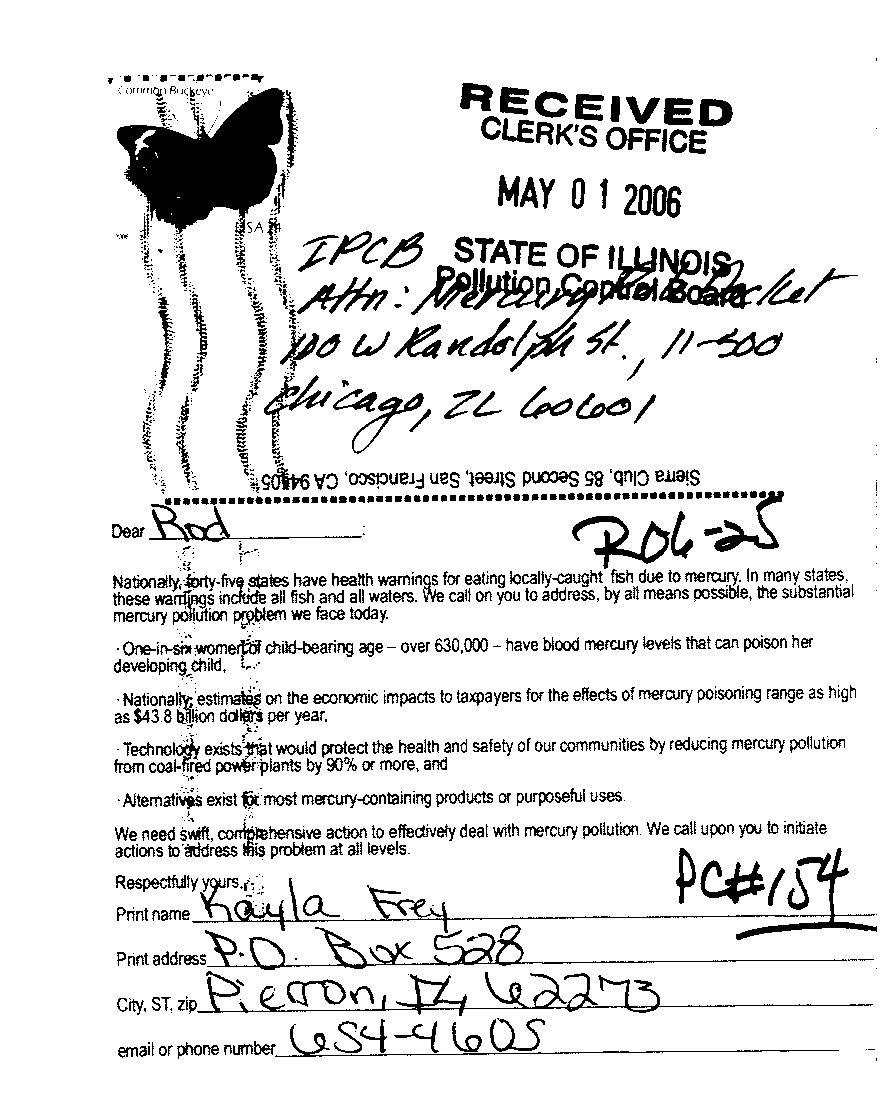 Common Buckeye
RECEIVED
CLERK'S OFFICE
MAY 01 2006
STATE OF ILLINOIS
Pollution Control Board
USA 24
IPCB
Attn: Mercury Docket
100 W Randolph St., 11-500
Chicago, IL 60601
Sierra Club, 85 Second Street, San Francisco, CA 94105
Dear Rod :
R06-25
Nationally, forty-five states have health warnings for eating locally-caught fish due to mercury. In many states,
these warnings include all fish and all waters. We call on you to address, by all means possible, the substantial
mercury pollution problem we face today.
· One-in-six women of child-bearing age – over 630,000 – have blood mercury levels that can poison her
developing child,
· Nationally, estimates on the economic impacts to taxpayers for the effects of mercury poisoning range as high
as $43.8 billion dollars per year,
· Technology exists that would protect the health and safety of our communities by reducing mercury pollution
from coal-fired power plants by 90% or more, and
· Alternatives exist for most mercury-containing products or purposeful uses.
We need swift, comprehensive action to effectively deal with mercury pollution. We call upon you to initiate
actions to address this problem at all levels.
Respectfully yours,
PC#154
Print name Kayla Frey
Print address P.O. Box 528
City, ST, zip Pierron, IL 62273
email or phone number 654-4605